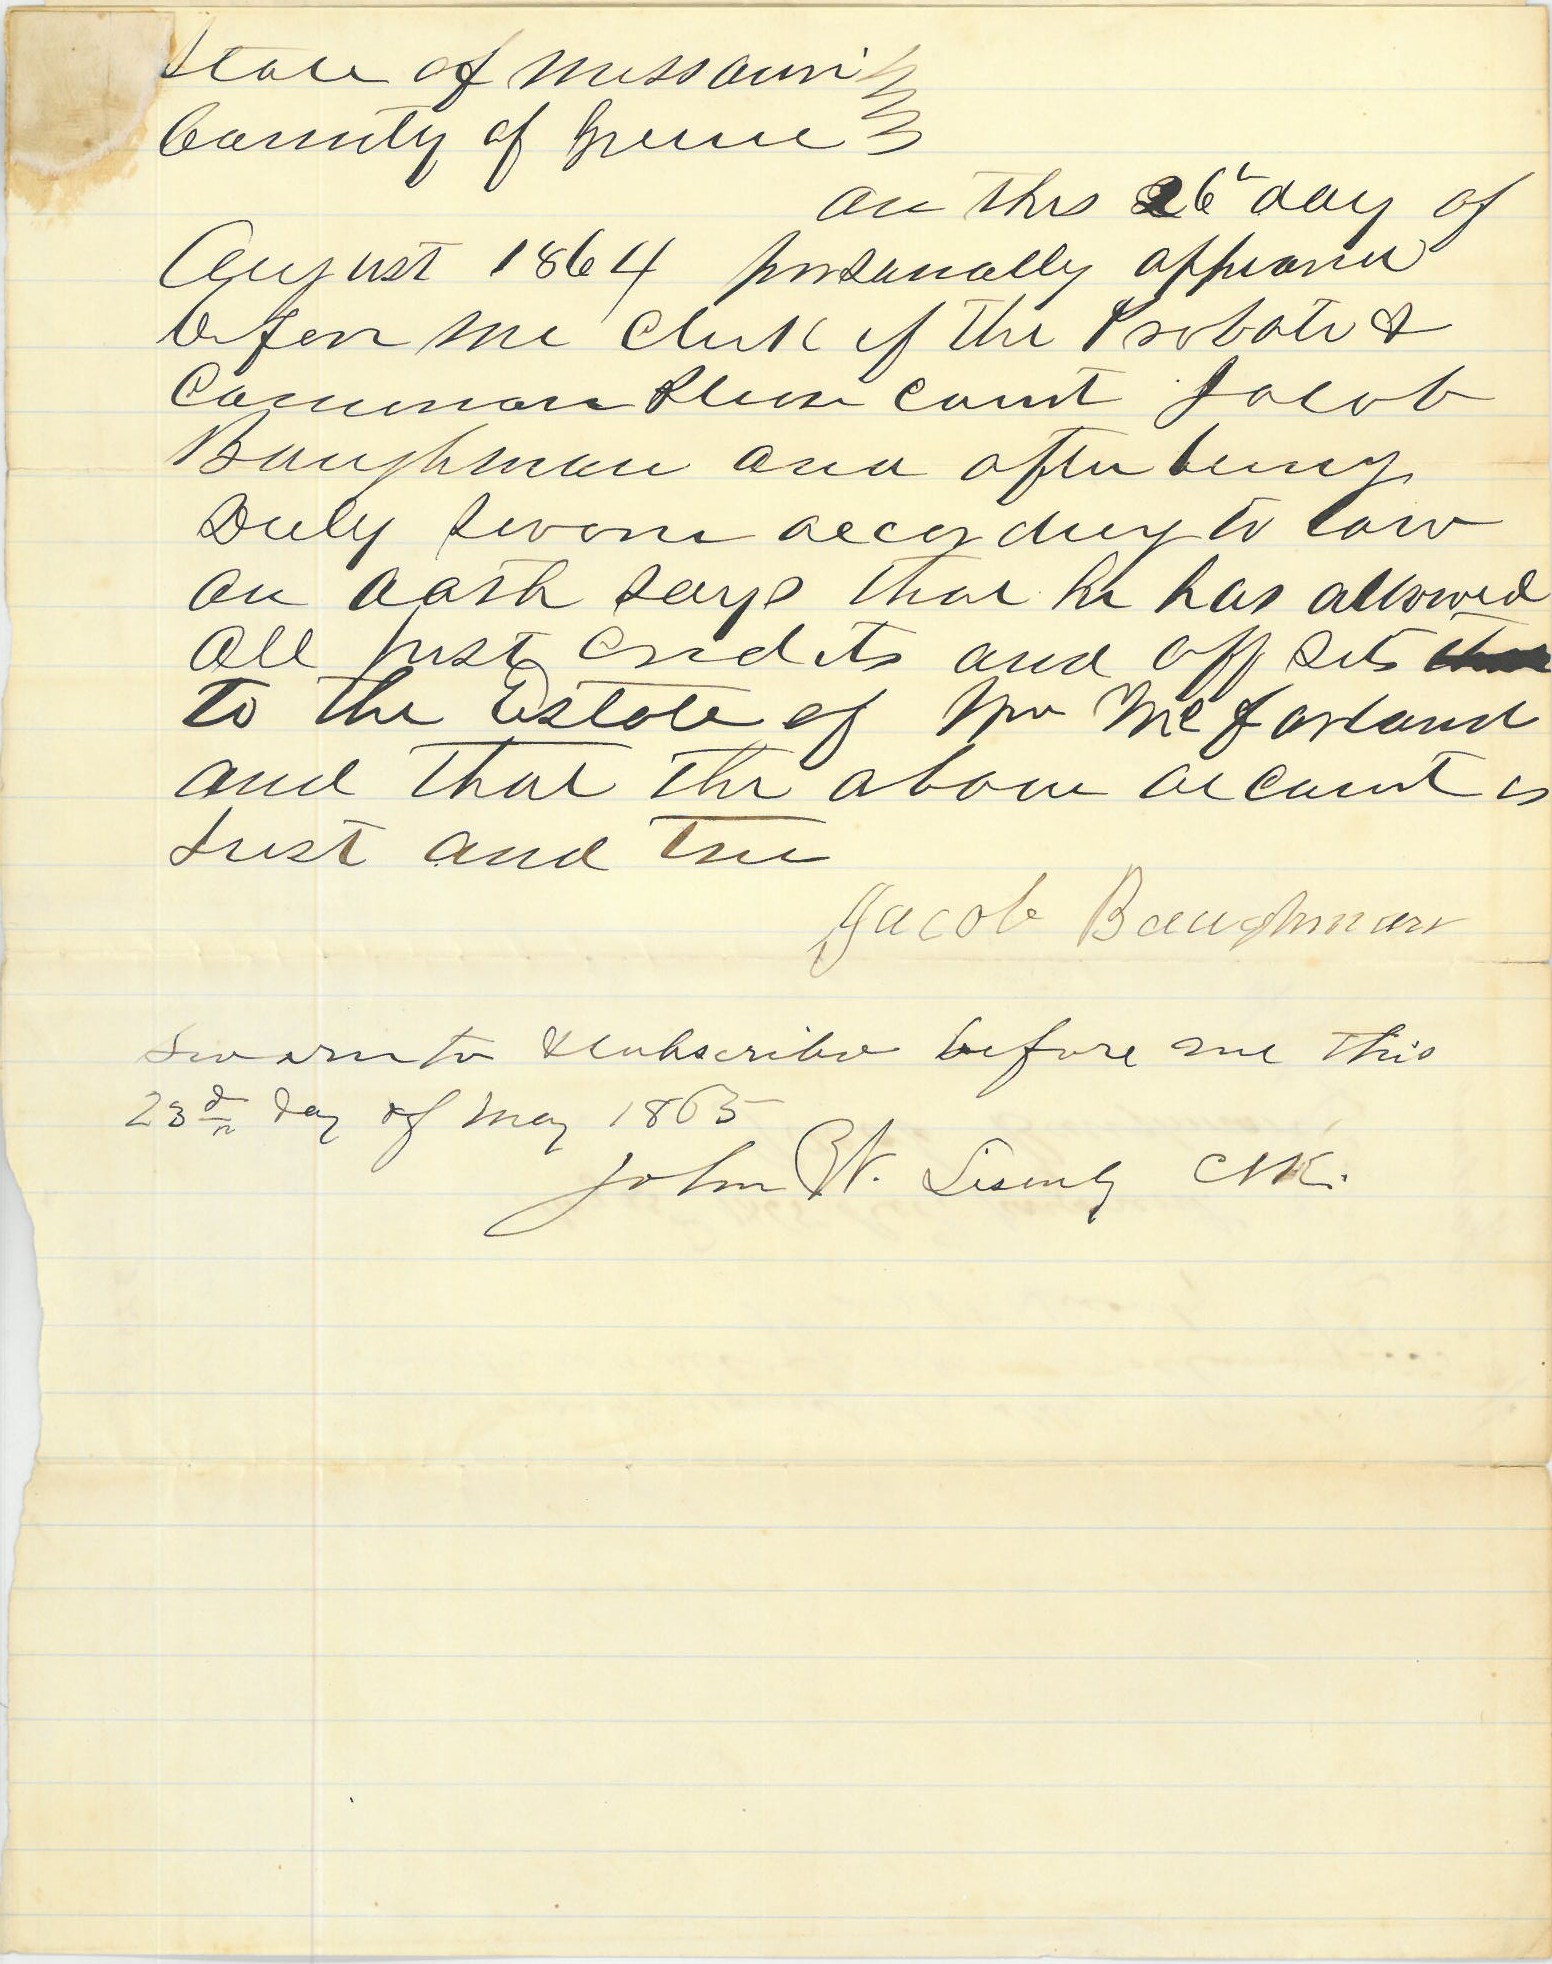 State of Missouri
County of Greene
on this 26 day of
August 1864 personally appeared
before me Clerk of the Probate &
Common Pleas court Jacob
Baughman and after being
Duly sworn according to law
on oath says that he has allowed
all just credits and off sets
to the Estate of Wm McFarland
and that the above account is
Just and true
Jacob Baughman
Sworn to & Subscribed before me this
23rd day of May 1865
John W. Lisenby Clk.